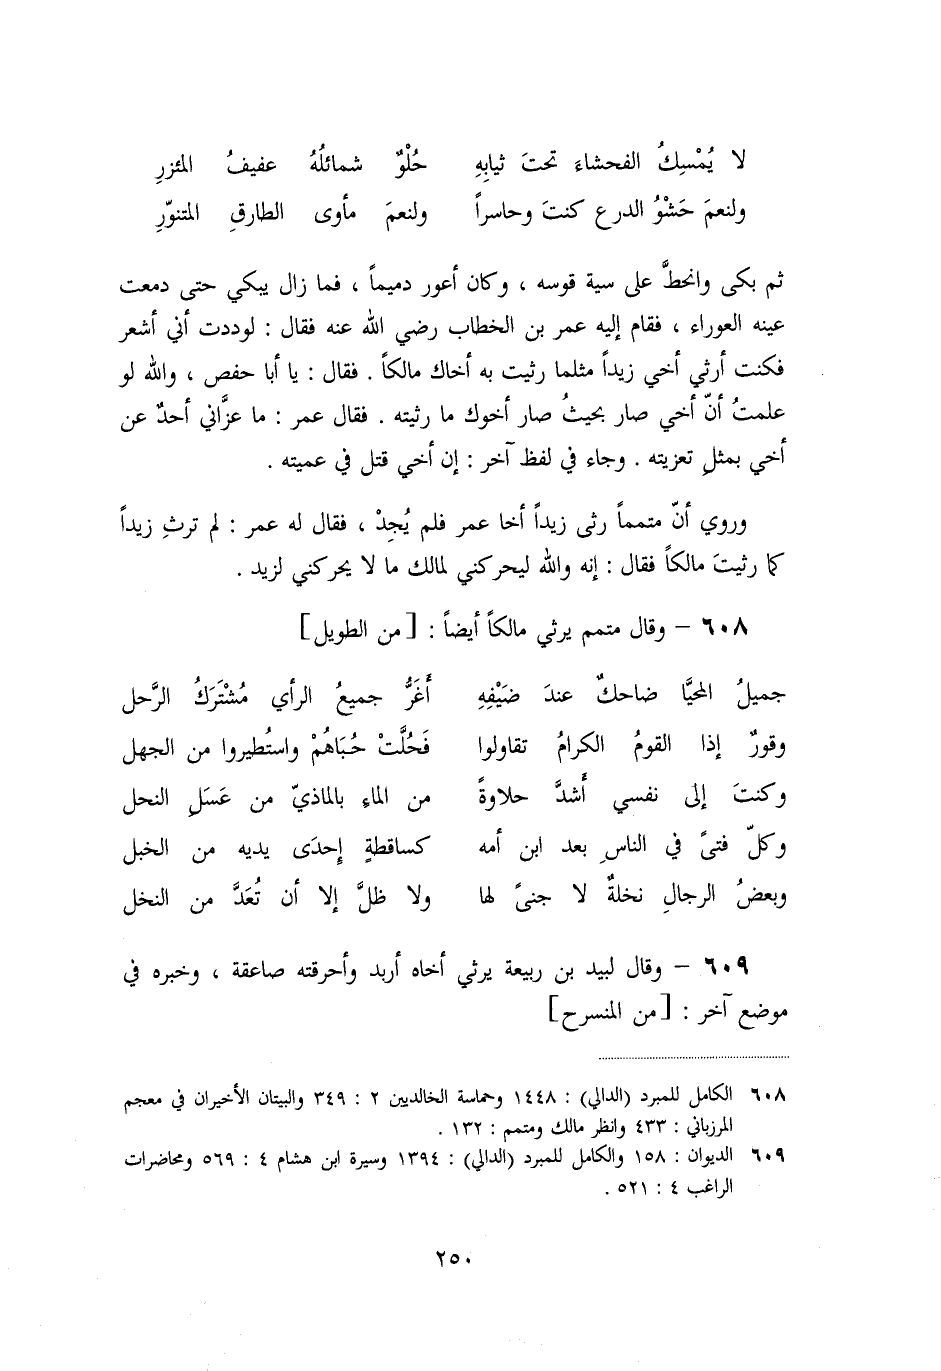 لا يُمْسِكُ الفحشاءَ تحتَ ثيابِهِ حُلْوٌ شمائلُهُ عفيفُ المئزرِ
ولنعمَ حَشْوُ الدرع كنتَ وحاسراً ولنعمَ مأوى الطارقِ المتنوّرِ
ثم بكى وانحطَّ على سية قوسه ، وكان أعور دميماً ، فما زال يبكي حتى دمعت
عينه العوراء ، فقام إليه عمر بن الخطاب رضي الله عنه فقال : لوددت أني أشعر
فكنت أرثي أخي زيداً مثلما رثيت به أخاك مالكاً . فقال : يا أبا حفص ، والله لو
علمتُ أنّ أخي صار بحيثُ صار أخوك ما رثيته . فقال عمر : ما عزَّاني أحدٌ عن
أخي بمثلِ تعزيته . وجاء في لفظ آخر : إن أخي قتل في عميته .
وروي أنّ متمماً رثى زيداً أخا عمر فلم يُجِدْ ، فقال له عمر : لم ترثِ زيداً
كما رثيتَ مالكاً فقال : إنه والله ليحركني لمالك ما لا يحركني لزيد .
٦٠٨ – وقال متمم يرثي مالكاً أيضاً : [من الطويل]
جميلُ المحيَّا ضاحكٌ عندَ ضَيْفِهِ أَغَرُّ جميعُ الرأي مُشْتَرَكُ الرَّحل
وقورٌ إذا القومُ الكرامُ تقاولوا فَحُلَّتْ حُبَاهُمْ واستُطيروا من الجهل
وكنتَ إلى نفسي أَشدَّ حلاوةً من الماءِ بالماذيّ من عَسَلِ النحل
وكلّ فتىً في الناسِ بعد ابن أمه كساقطةٍ إِحدَى يديه من الخبل
وبعضُ الرجالِ نخلةٌ لا جنىً لها ولا ظلَّ إلا أن تُعَدَّ من النخل
٦٠٩ – وقال لبيد بن ربيعة يرثي أخاه أربد وأحرقته صاعقة ، وخبره في
موضع آخر : [من المنسرح]
٦٠٨ الكامل للمبرد (الدالي) : ١٤٤٨ وحماسة الخالديين ٢ : ٣٤٩ والبيتان الأخيران في معجم
المرزباني : ٤٣٣ وانظر مالك ومتمم : ١٣٢ .
٦٠٩ الديوان : ١٥٨ والكامل للمبرد (الدالي) : ١٣٩٤ وسيرة ابن هشام ٤ : ٥٦٩ ومحاضرات
الراغب ٤ : ٥٢١ .
٢٥٠